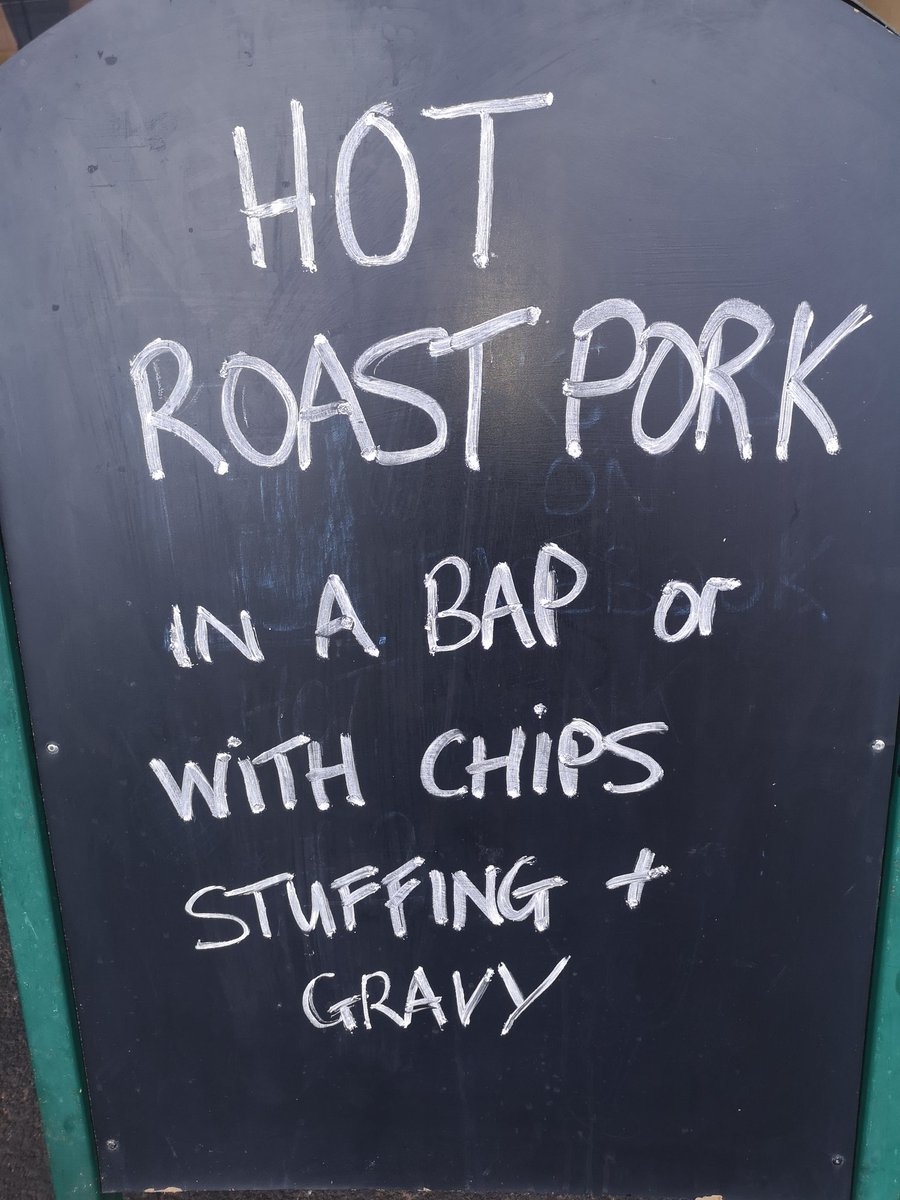 HOT
ROAST PORK
IN A BAP or
WiTH CHiPS
STUFFING +
GRAVY